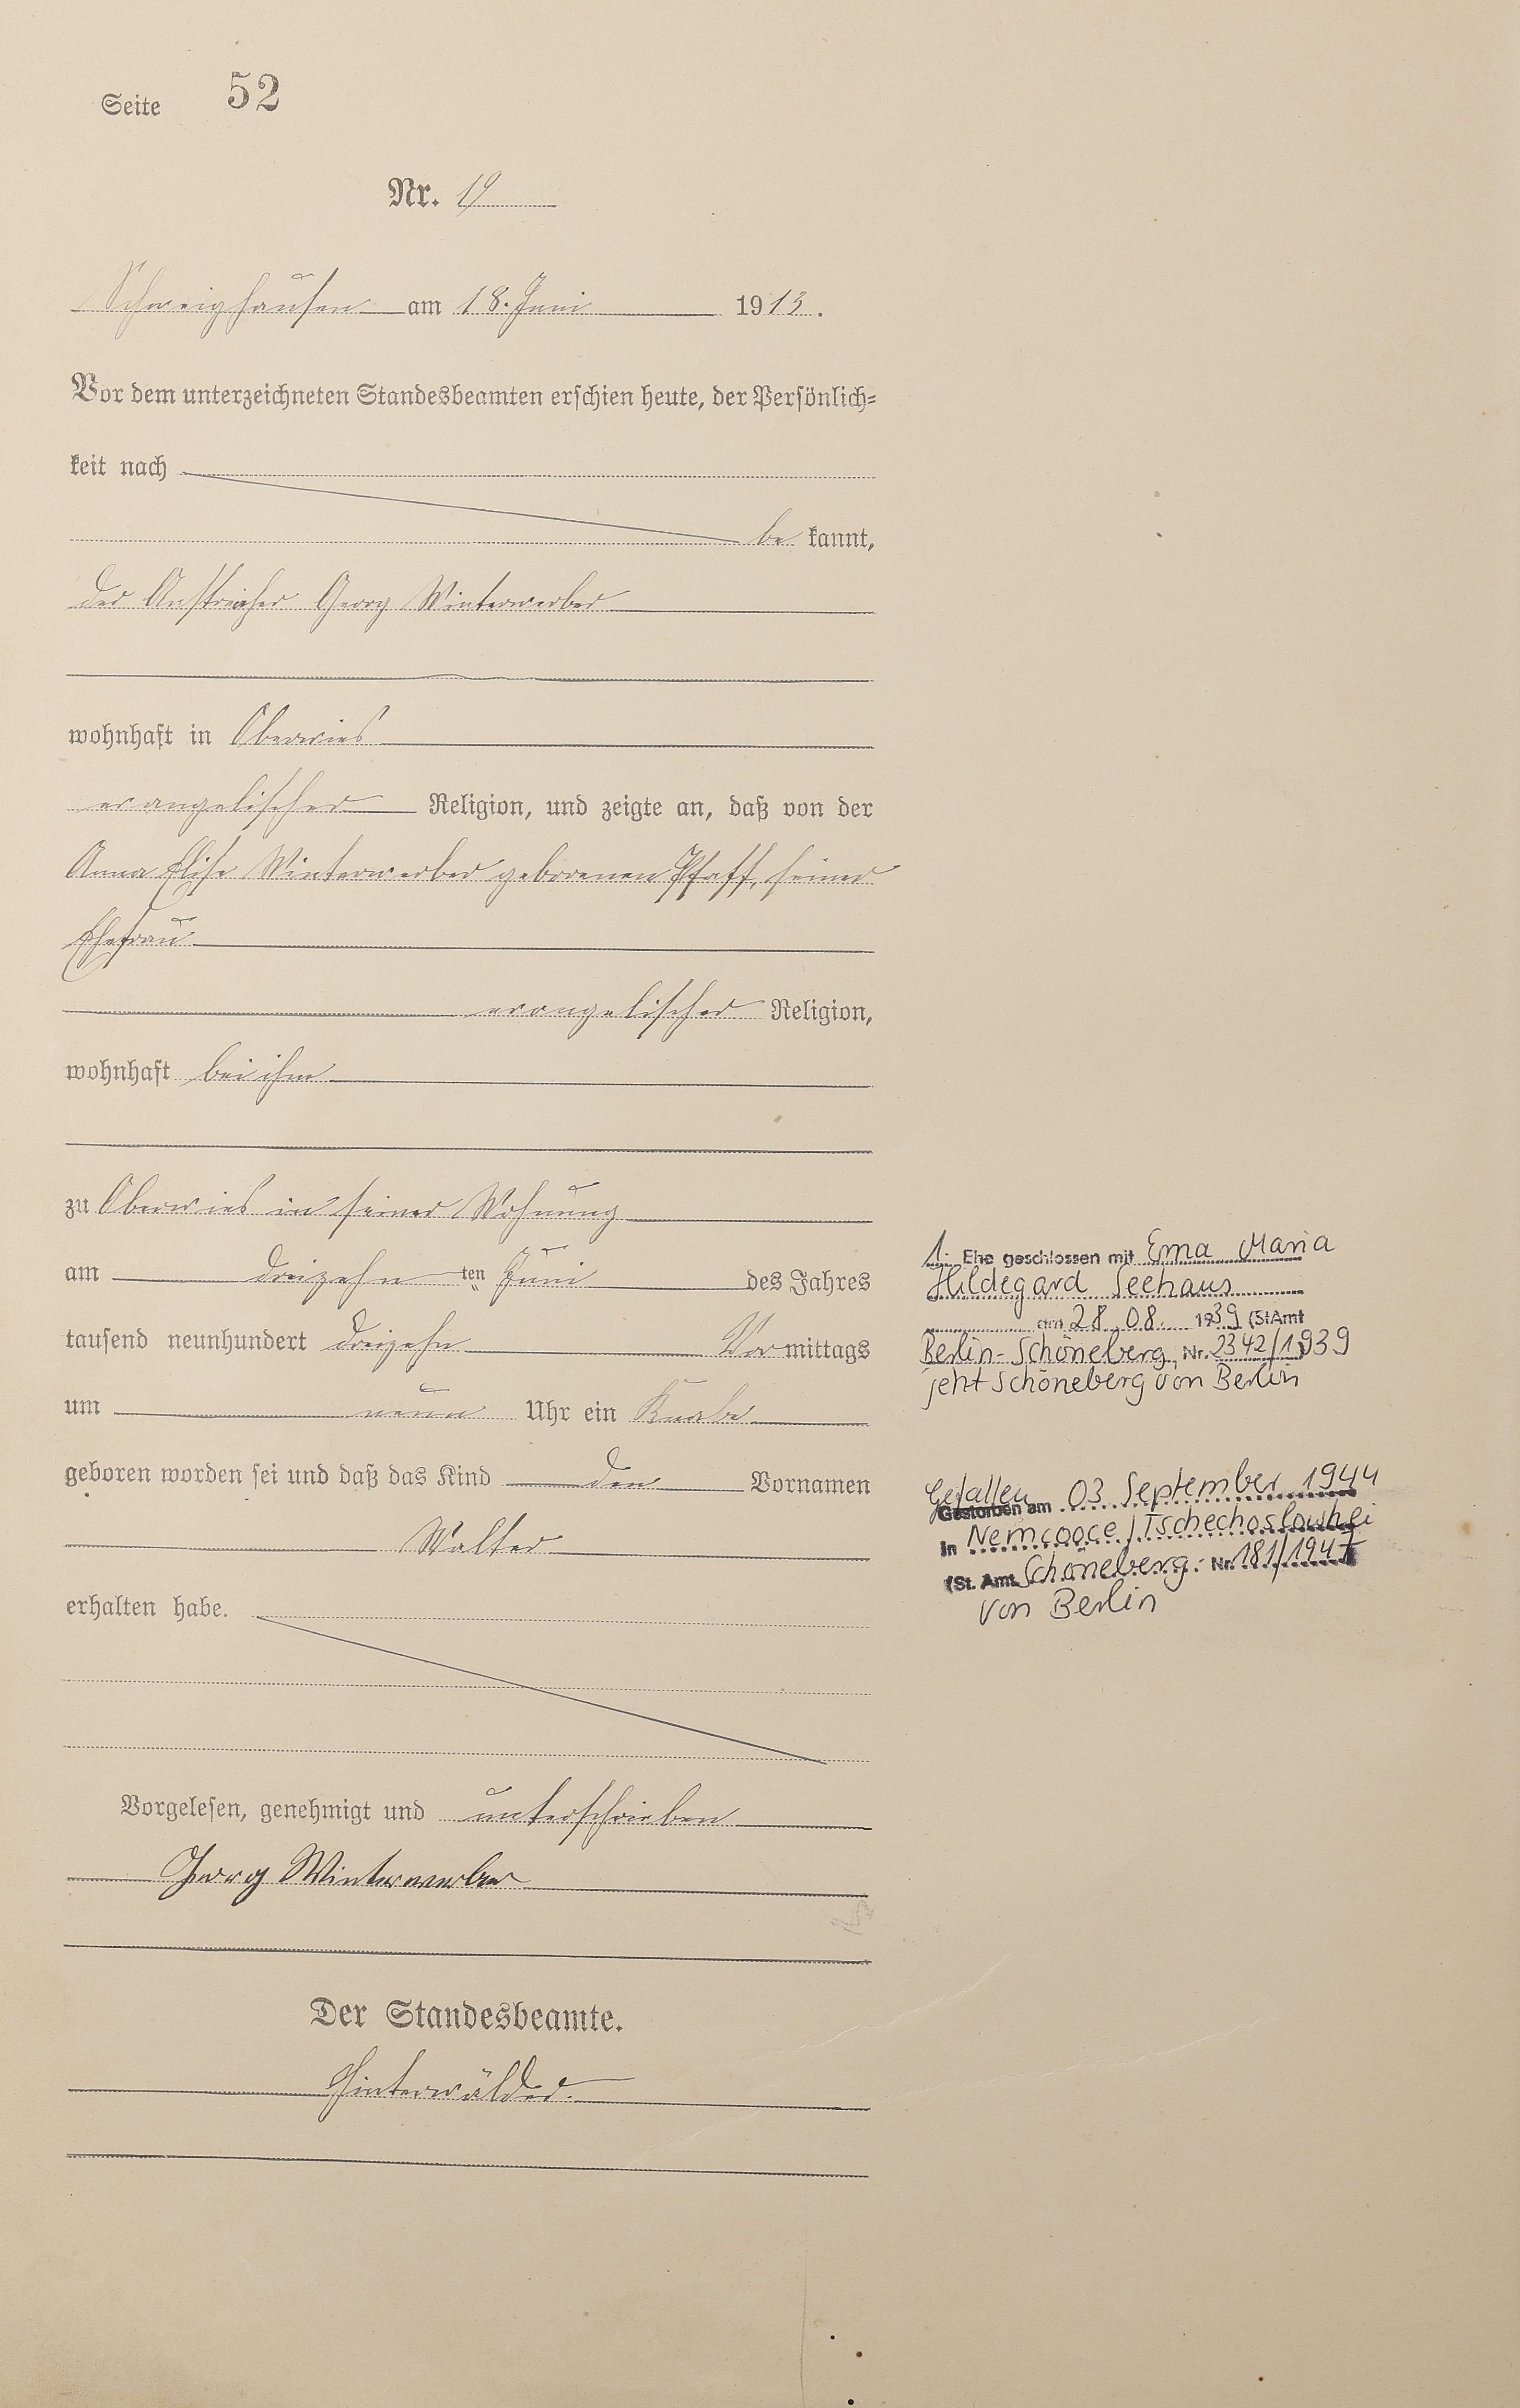 Seite 52
Nr. 19
Schweighausen am 18. Juni 1913.
Vor dem unterzeichneten Standesbeamten erschien heute, der Persönlich-
keit nach
be kannt,
der Anstreicher Georg Winterwerber
wohnhaft in Oberwies
evangelischer Religion, und zeigte an, daß von der
Anna Elise Winterwerber geborenen Pfaff, seiner
Ehefrau
evangelischer Religion,
wohnhaft bei ihm
zu Oberwies in seiner Wohnung
am dreizehn ten Juni des Jahres
tausend neunhundert dreizehn Vor mittags
um neun Uhr ein Knabe
geboren worden sei und daß das Kind den Vornamen
Walter
erhalten habe.
Vorgelesen, genehmigt und unterschrieben
Georg Winterwerber
Der Standesbeamte.
Hinterwälder.
1. Ehe geschlossen mit Erna Maria
Hildegard Seehaus
am 28.08. 1939 (StAmt
Berlin-Schöneberg, Nr. 2342/1939
jetzt Schöneberg von Berlin
Gefallen
Gestorben am 03 September 1944
in / Tschechoslowakei
(St. Amt Schöneberg Nr. 181/1947
von Berlin